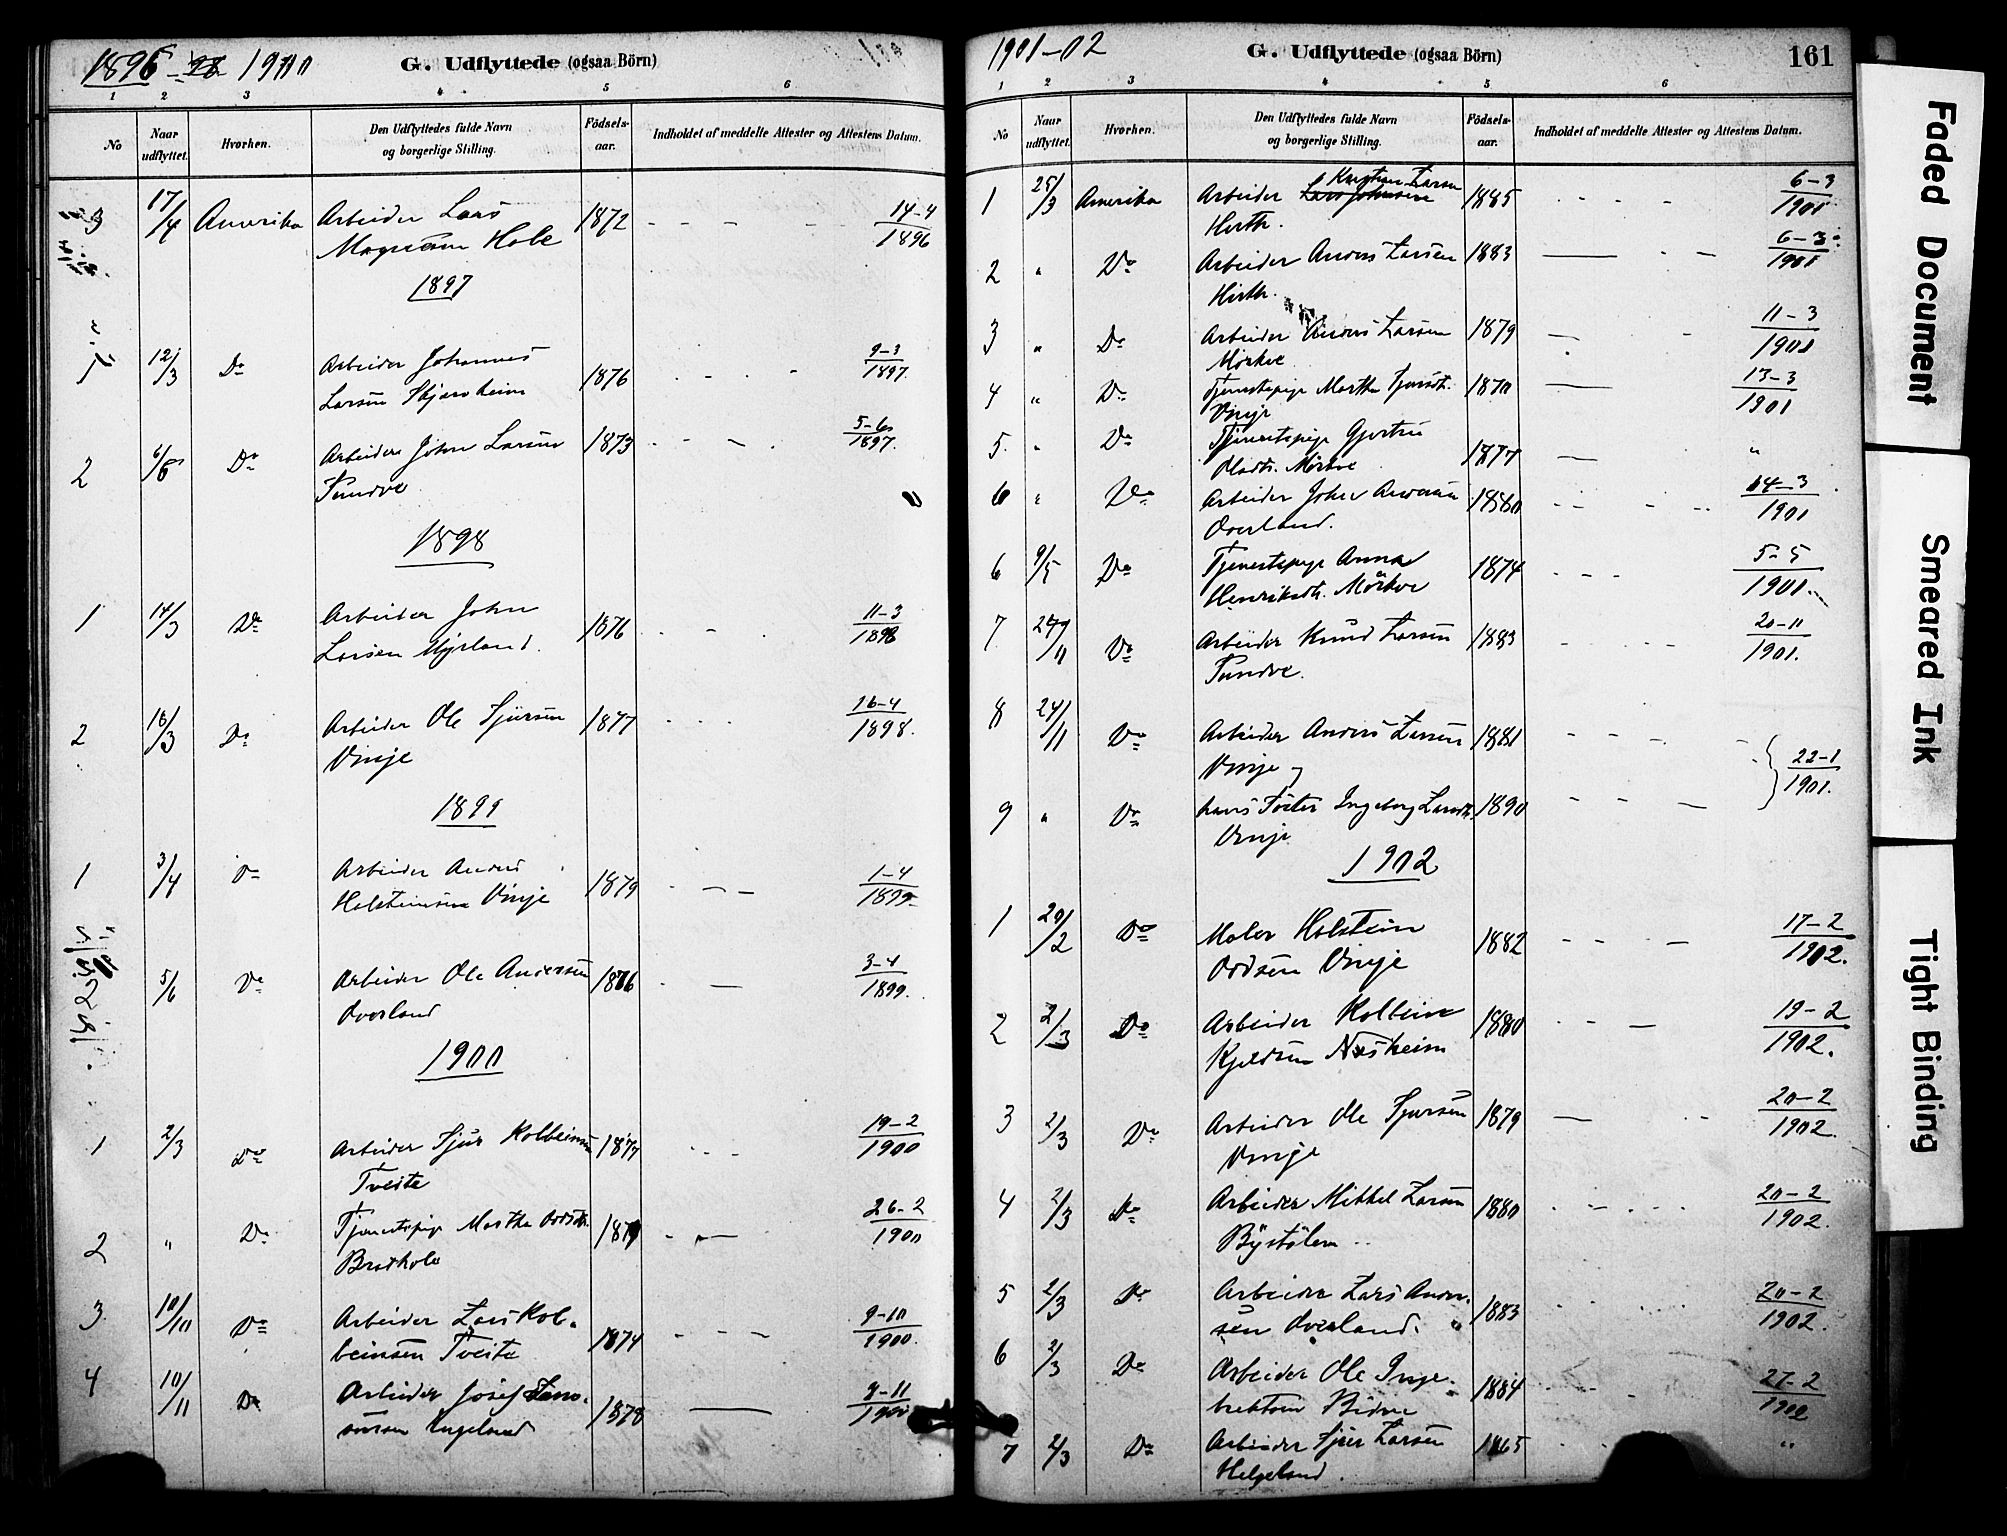 1896 - 28 1900
G. Udflyttede (ogsaa Börn)
1 2 3 4 5 6
No
Naar udflyttet.
Hvorhen.
Den Udflyttedes fulde Navn og borgerlige Stilling.
Födsels-aar.
Indholdet af meddelte Attester og Attestens Datum.
3 17/4 Amerika Arbeider Lars 1872 - - - - 14-4/1896
Hole
1897
1 12/3 Do Arbeider Johannes 9-3/1897.
Larsen Skjerveheim 1876
2 Do Arbeider John Larsen 1873 5-6/1897.
Tundve
1898
1 14/3 Do Arbeider John 1876 11-3/1898
Larsen Myrland.
2 16/3 Do Arbeider Ole Sjursen 1877 16-4/1898.
Vinje
1899
1 3/4 Do Arbeider Anders 1879 1-4/1899
Holsteinsen Vinje
5/6 Do Arbeider Ole Andersen 1876 3-4/1899.
Overland
1900
1 2/3 Do Arbeider Sjur Kolbeinsen 1877 19-2/1900
Tveite
2 " Do Tjenestepige Martha Oddsdtr. 26-2/1900
3 10/10 Do Arbeider Lars Kol- 1874 9-10/1900.
beinsen Tveite
4 10/11 Do Arbeider Josef 1878 9-11/1900
1901-02
G. Udflyttede (ogsaa Börn)
161
1 2 3 4 5 6
No
Naar udflyttet.
Hvorhen.
Den Udflyttedes fulde Navn og borgerlige Stilling.
Födsels-aar.
Indholdet af meddelte Attester og Attestens Datum.
Kristian Larsen
1 25/3 Amerika Arbeider Lars Johnsen 1885 6-3/1901
Hirth.
2 " Do Arbeider Anders Larsen 1883 6-3/1901
Hirth.
3 " Do Arbeider Anders Larsen 1879 11-3/1901
Mörkve
4 " Do Tjenestepige Martha 1870 13-3/1901
Vinje
5. " Do Tjenestepige Gjertru 1877 "
Olsdtr. Mörkve
6 " Do Arbeider John 1880 14-3/1901
Overland.
6 9/5 Do Tjenestepige Anna 1874 5-5/1901.
Henriksdtr. Mörkve
7 Do Arbeider Knud Larsen 1883 20-11/1901.
Tundve.
8 24/11 Do Arbeider Anders Larsen 1881 22-1/1901.
Vinje og
9 " Do hans Söster Ingeborg Larsdtr. 1890
Vinje
1902
1 20/2 Do Maler Holstein 1882 17-2/1902.
Oddsen Vinje
2 2/3 Do Arbeider Kolbein 1880 19-2/1902.
Kjeldsen Næsheim
3 2/3 Do Arbeider Ole Sjursen 1879 20-2/1902.
Vinje
4 2/3 Do Arbeider Mikkel Larsen 1880 20-2/1902.
Bystölen
5 2/3 Do Arbeider Lars Ander- 1883 20-2/1902.
sen Överland.
6 2/3 Do Arbeider Ole Inge- 1884 27-2/1902
brektsen
7 2/3 Do Arbeider Sjur Larsen 1865 "
Helgeland.
Faded Document
Smeared Ink
Tight Binding